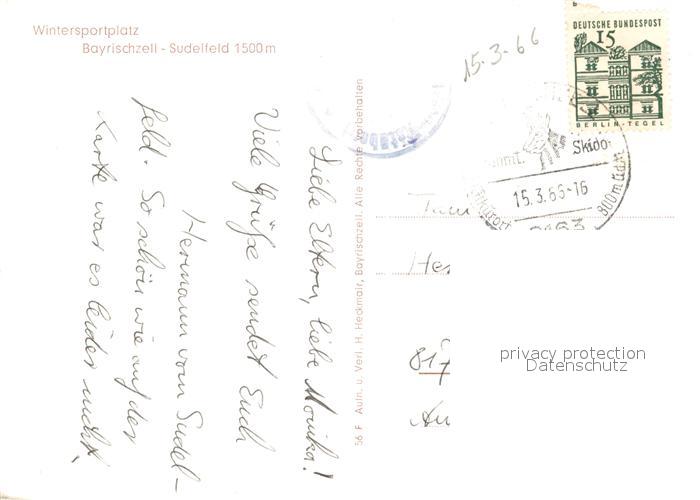 Wintersportplatz
Bayrischzell - Sudelfeld 1500 m
15.3.66
DEUTSCHE BUNDESPOST
15
BERLIN-TEGEL
Skido
15.3.66-16
800 m ü.d.M.
Liebe Eltern, liebe Monika!
Viele Grüße sendet Euch
Hermann vom Sudel-
feld. So schön wie auf der
Karte war es leider nicht.
56 F Aufn. u. Verl. H. Heckmair, Bayrischzell. Alle Rechte vorbehalten
Fam
817
privacy protection
Datenschutz